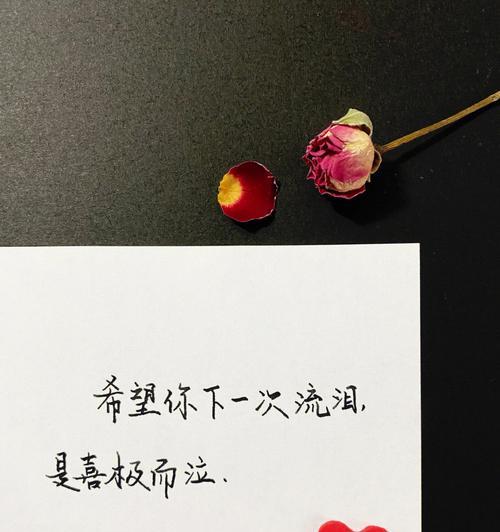 希望你下一次流泪,
是喜极而泣.